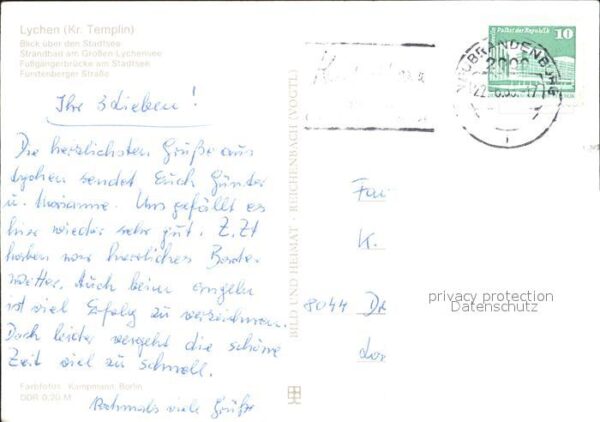 Lychen (Kr. Templin)
Blick über den Stadtsee
Strandbad am Großen Lychensee
Fußgängerbrücke am Stadtsee
Fürstenberger Straße
Ihr 3 Lieben!
Die herzlichsten Grüße aus
Lychen sendet Euch Günter
u. Marianne. Uns gefällt es
hier wieder sehr gut. Z.Zt
haben wir herrliches Bade-
wetter. Auch beim angeln
ist viel Erfolg zu verzeichnen.
Doch leider vergeht die schöne
Zeit viel zu schnell.
Nochmals viele Grüße
Farbfotos: Kampmann, Berlin
DDR 0,20 M
BILD UND HEIMAT · REICHENBACH (VOGTL)
Palast der Republik
10
NEUBRANDENBURG
2000
Fa
K.
8044 Dr
privacy protection
Datenschutz